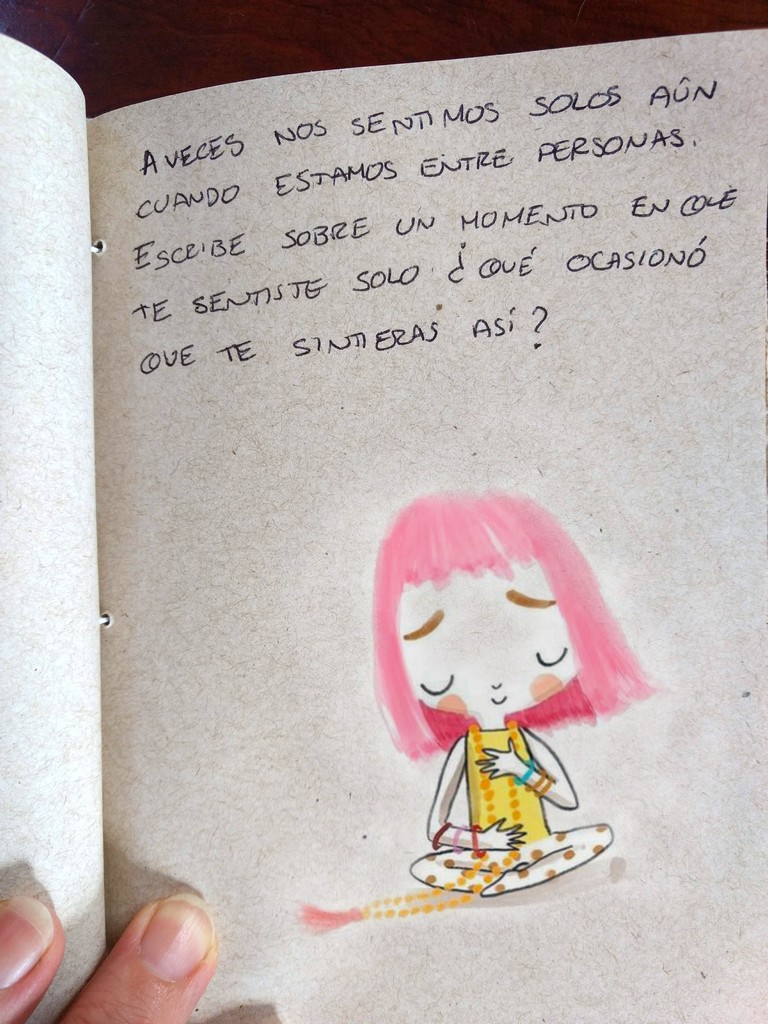 A VECES NOS SENTIMOS SOLOS AÚN
CUANDO ESTAMOS ENTRE PERSONAS.
ESCRIBE SOBRE UN MOMENTO EN QUE
TE SENTISTE SOLO ¿QUÉ OCASIONÓ
QUE TE SINTIERAS ASÍ?